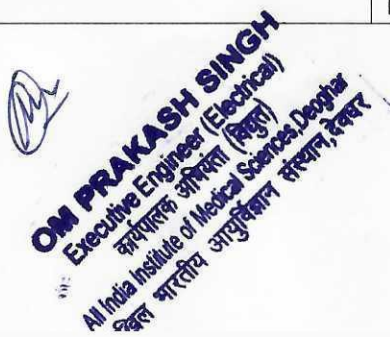 OM PRAKASH SINGH
Executive Engineer (Electrical)
कार्यपालक अभियंता (विद्युत)
All India Institute of Medical Sciences,Deoghar
भारतीय आयुर्विज्ञान संस्थान,देवघर